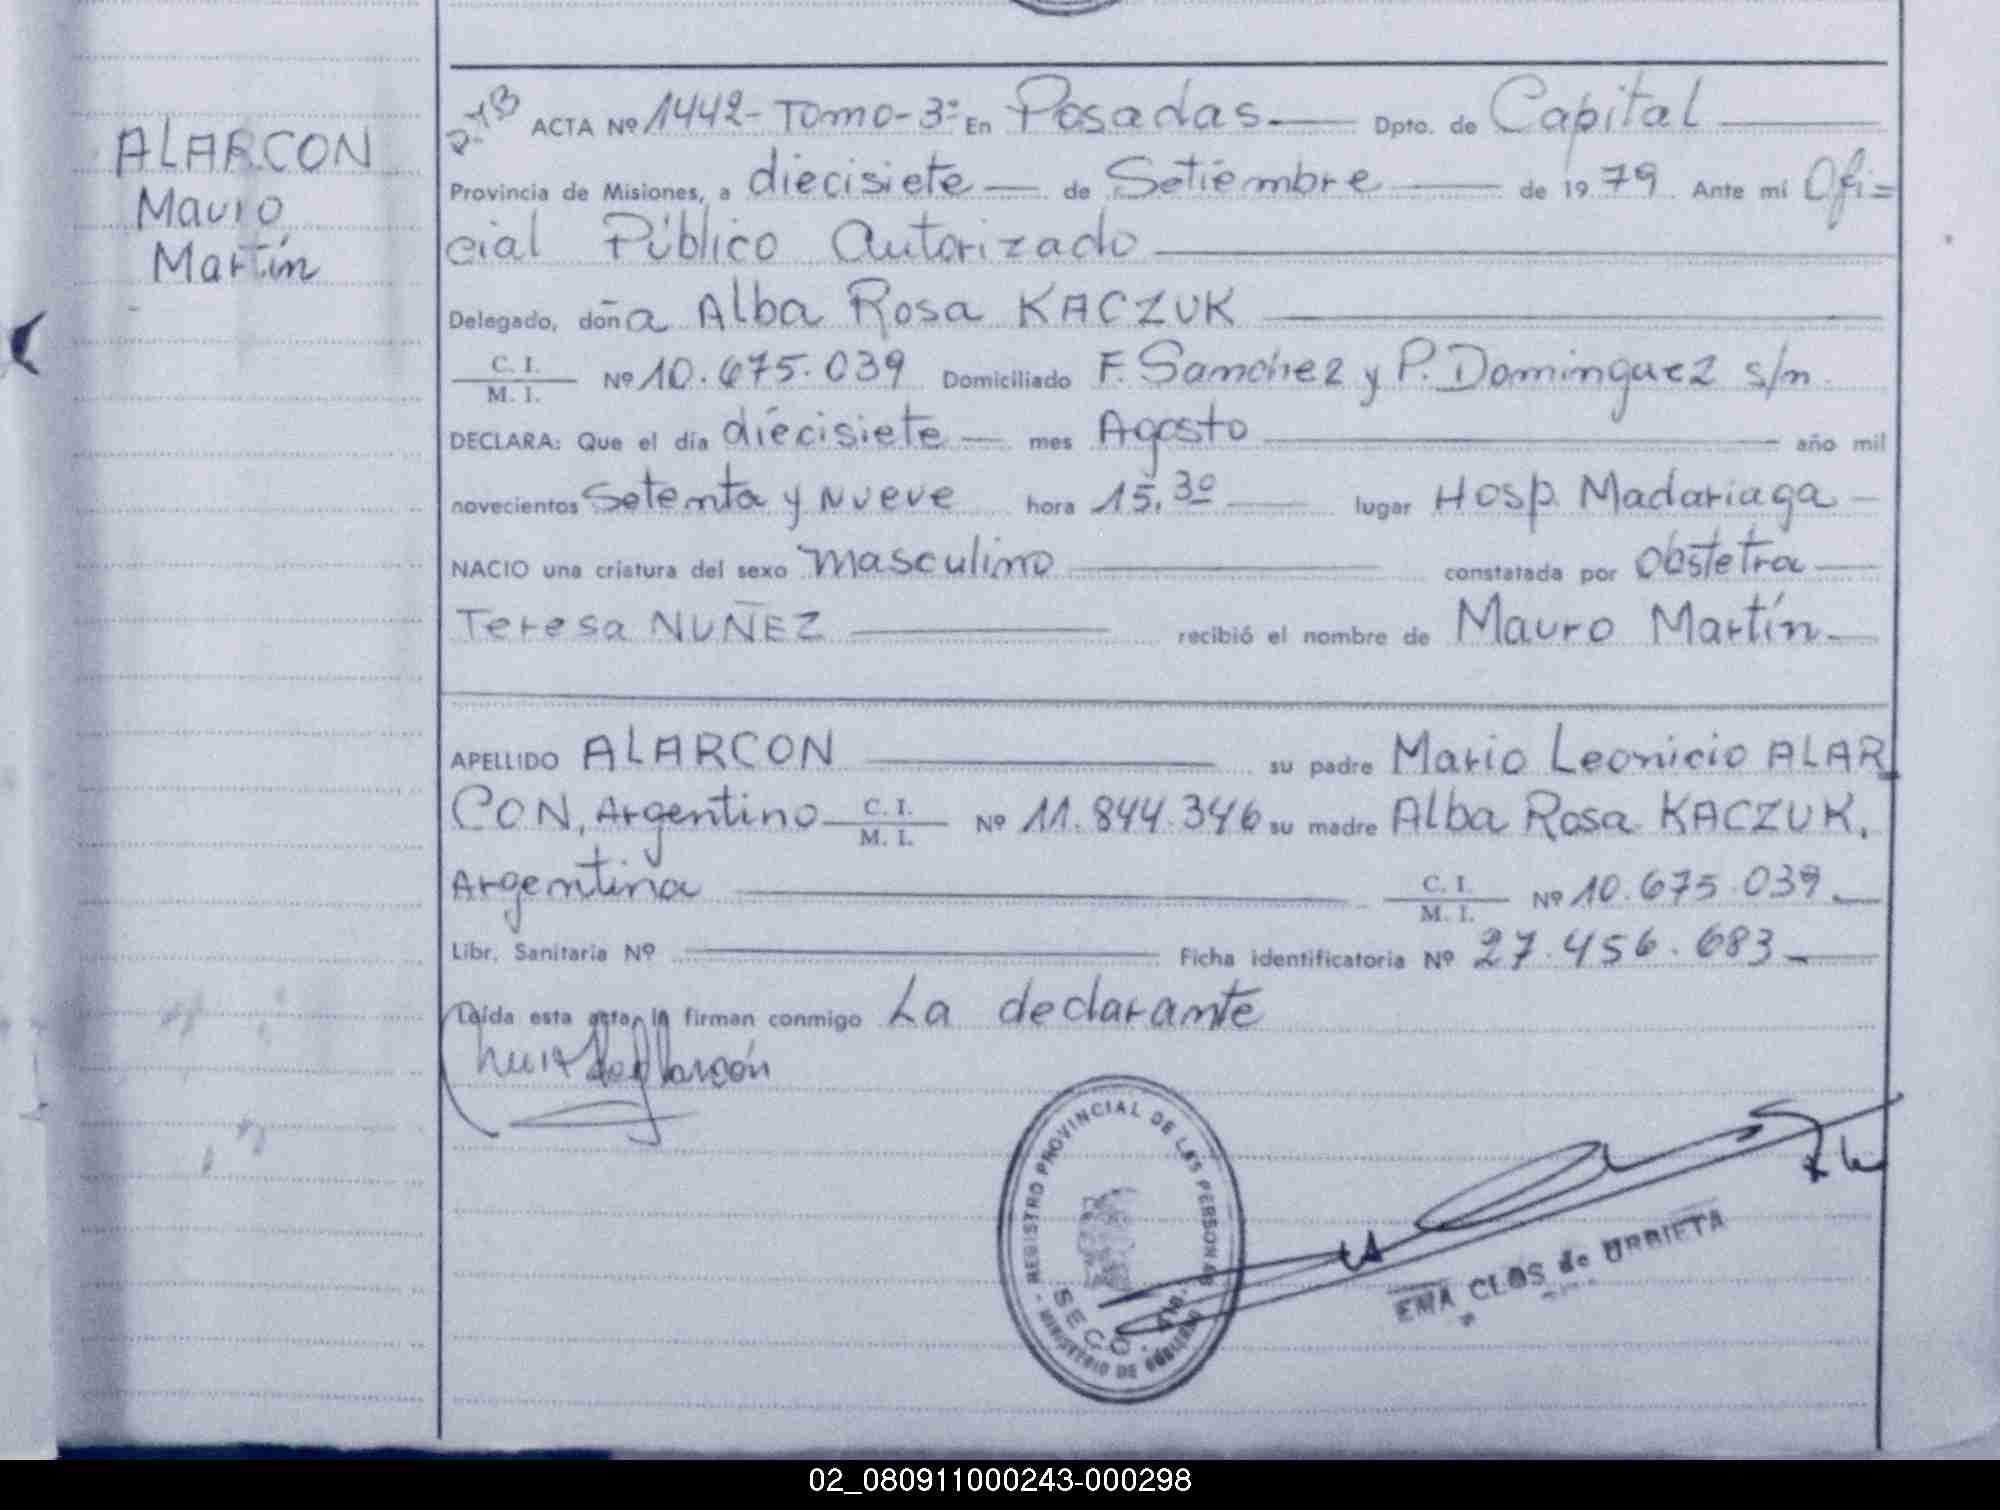 ALARCON
Mauro
Martín
ACTA Nº 1442- Tomo-3º En Posadas Dpto. de Capital
Provincia de Misiones, a diecisiete de Setiembre de 1979 Ante mí Ofi=
cial Público Autorizado
Delegado, doña Alba Rosa KACZUK
C. I.
M. I. Nº 10.675.039 Domiciliado F. Sanchez y P. Dominguez s/n.
DECLARA: Que el día diecisiete mes Agosto año mil
novecientos Setenta y Nueve hora 15,30 lugar Hosp. Madariaga
NACIO una criatura del sexo masculino constatada por Obstetra
Teresa NUÑEZ recibió el nombre de Mauro Martín
APELLIDO ALARCON su padre Mario Leonicio ALAR
CON, Argentino C. I. M. I. Nº 11.844.346 su madre Alba Rosa KACZUK,
Argentina C. I. M. I. Nº 10.675.039
Libr. Sanitaria Nº Ficha identificatoria Nº 27.456.683
Leída esta acta, la firman conmigo La declarante
REGISTRO PROVINCIAL DE LAS PERSONAS
MINISTERIO DE GOBIERNO
EMA CLOS de URBIETA
02_080911000243-000298